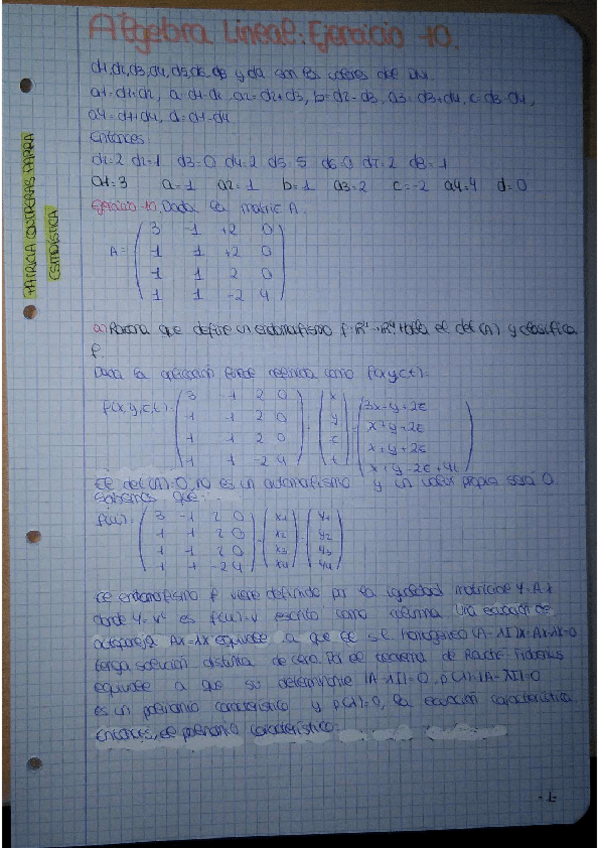 Álgebra Lineal: Ejercicio 10.
d1, d2, d3, d4, d5, d6, d7, d8 son los valores del DNI.
a1=d1+d2, a=d1-d2, a2=d2+d3, b=d2-d3, a3=d3+d4, c=d3-d4,
a4=d1+d4, d=d1-d4
Entonces:
d1=2 d2=1 d3=0 d4=2 d5=5 d6=0 d7=2 d8=1
a1=3 a=1 a2=1 b=1 a3=2 c=-2 a4=4 d=0
Ejercicio 10. Dada la matriz A.
3 -1 +2 0
1 1 +2 0
A=
1 1 2 0
1 1 -2 4
a) Razona que define un endomorfismo f: R⁴→R⁴. Halla el det(A) y clasifica
f
Dada la aplicación puede definida como f(x,y,z,t):
f(x,y,z,t)=
3 -1 2 0 x 3x-y+2z
1 1 2 0 y x+y+2z
1 1 2 0 z x+y+2z
1 1 -2 4 t x+y-2z+4t
El det(A)=0, no es un automorfismo y un valor propio será 0.
Sabemos que:
f(u)=
3 -1 2 0 x1 y1
1 1 2 0 x2 y2
1 1 2 0 x3 y3
1 1 -2 4 x4 y4
El endomorfismo f viene definido por la igualdad matricial Y=AX
donde Y es f(u)=v escrito como columna. Una ecuación de
autopareja AX=λX equivale a que el s.l. homogéneo (A-λI)X=AX-λX=0
tenga solución distinta de cero. Por el teorema de Rouché-Frobenius
equivale a que su determinante |A-λI|=0. p(λ)=|A-λI|=0
es un polinomio característico y p(λ)=0, la ecuación característica.
Entonces, el polinomio característico:
-1-
PATRICIA CONTRERAS PARRA
ESTADÍSTICA